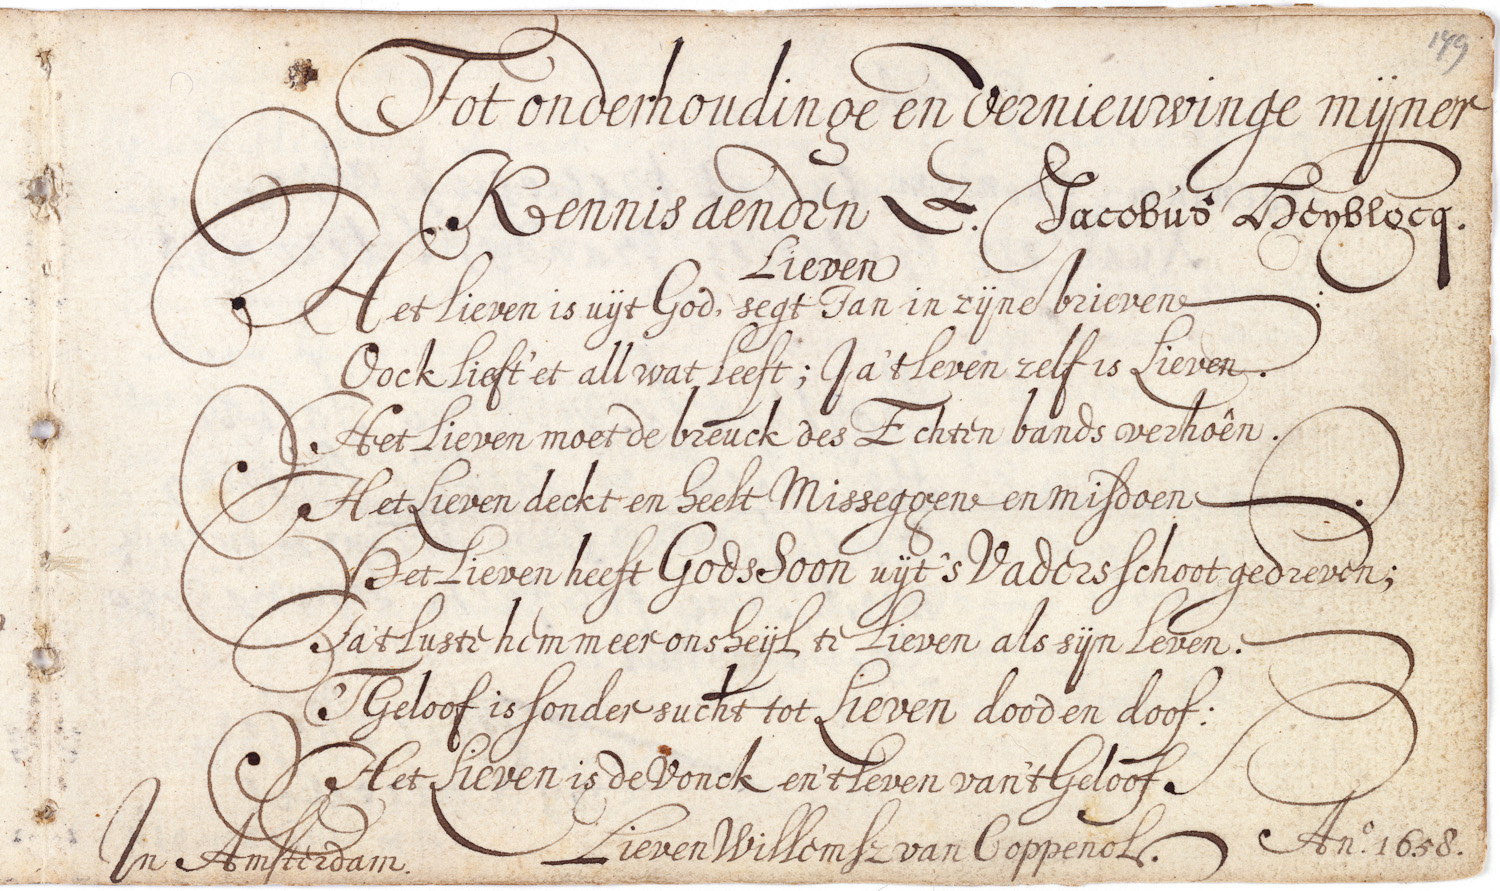 149
Tot onderhoudinge en vernieuwinge mijner
Kennis aenden E. Jacobus Heyblocq.
Lieven
Het Lieven is uijt God, segt Jan in zijne brieven:
Oock lieft'et all wat leeft; Ja't leven zelf is Lieven.
Het Lieven moet de breuck des Echten bands verhoên.
Het Lieven deckt en heelt Misseggen en misdoen.
Het Lieven heeft Gods Soon uijt 's Vaders schoot gedreven;
Ja't luste hem meer ons heijl te Lieven als sijn leven.
T Geloof is sonder sucht tot Lieven dood en doof:
Het Lieven is de Vonck en't leven van't Geloof.
In Amsterdam. Lieven Willemsz van Coppenol. Ano. 1658.